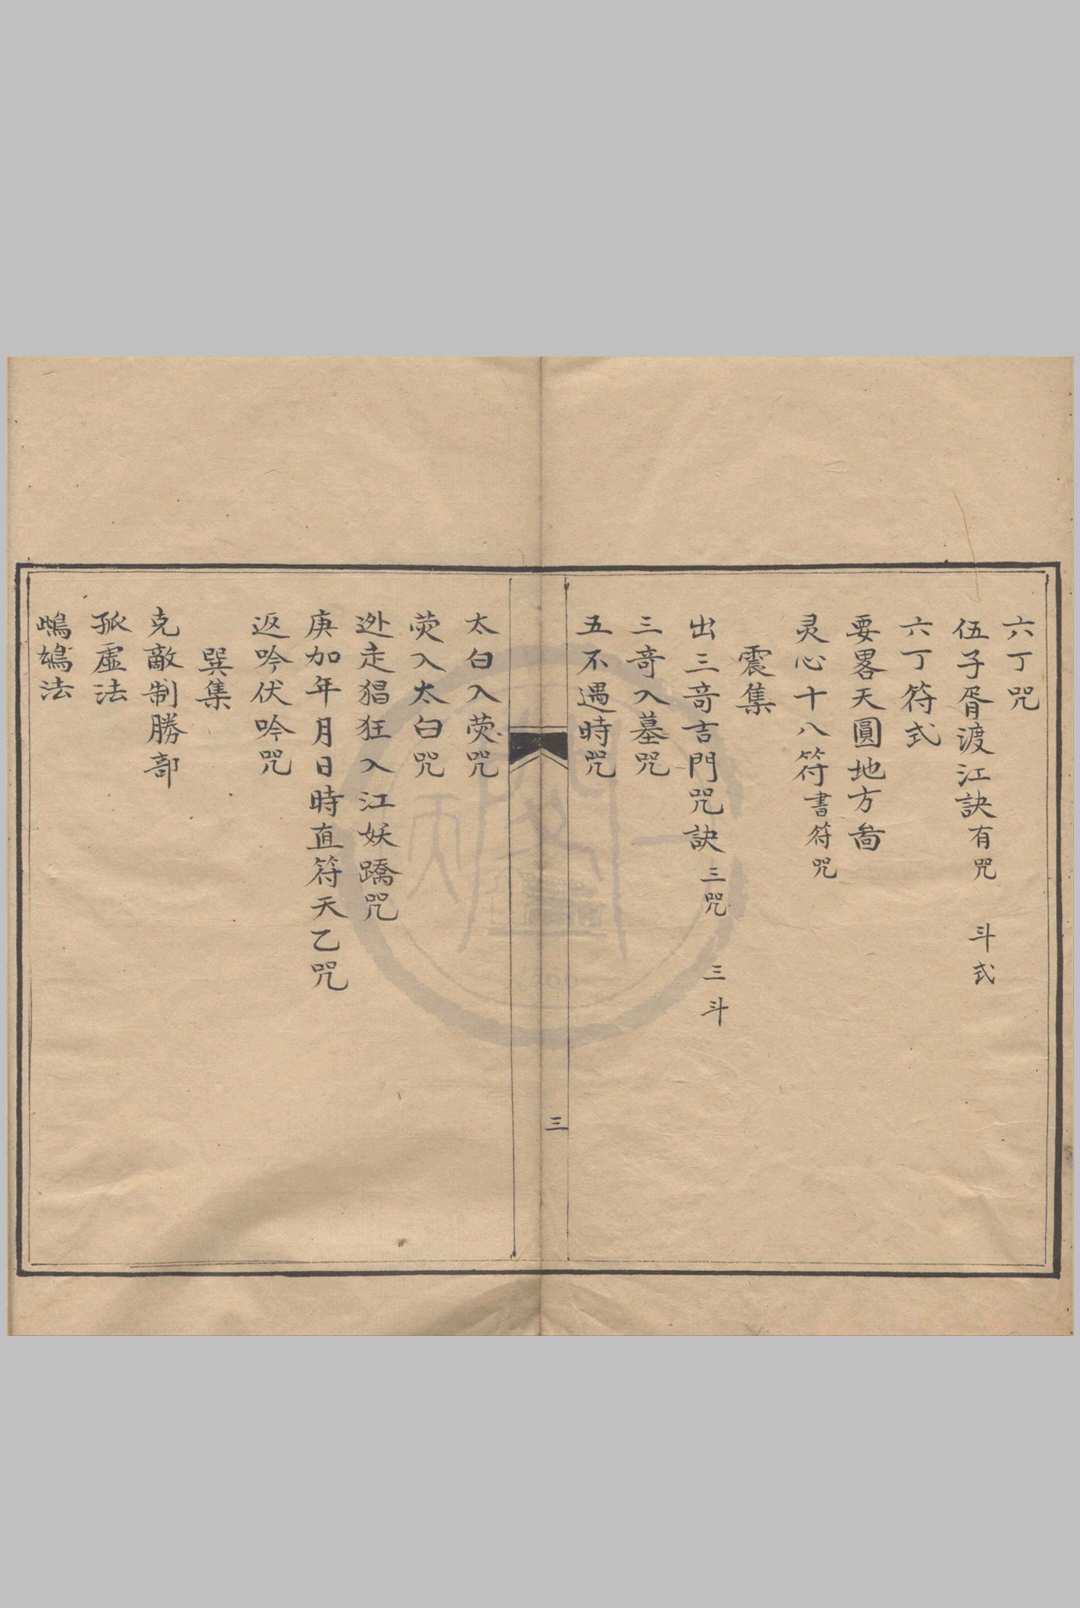 六丁咒
伍子胥渡江訣有咒 斗式
六丁符式
要畧天圓地方啚
灵心十八符書符咒
震集
出三竒吉門咒訣三咒 三斗
三竒入墓咒
五不遇時咒
三
太白入熒咒
熒入太白咒
迯走猖狂入江妖蹻咒
庚加年月日時直符天乙咒
返吟伏吟咒
巽集
克敵制勝部
孤虛法
鳩法